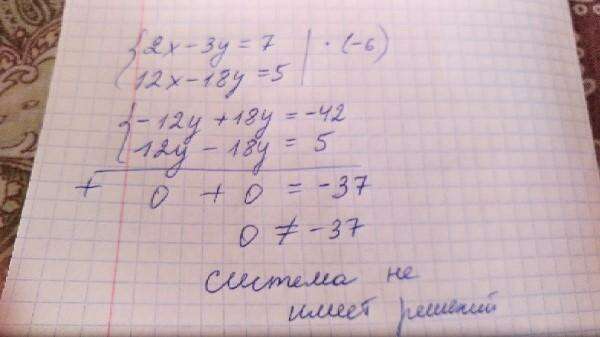 {2x - 3y = 7 | · (-6)
{12x - 18y = 5 |
{-12y + 18y = -42
{12y - 18y = 5
+ 0 + 0 = -37
0 ≠ -37
система не
имеет решений